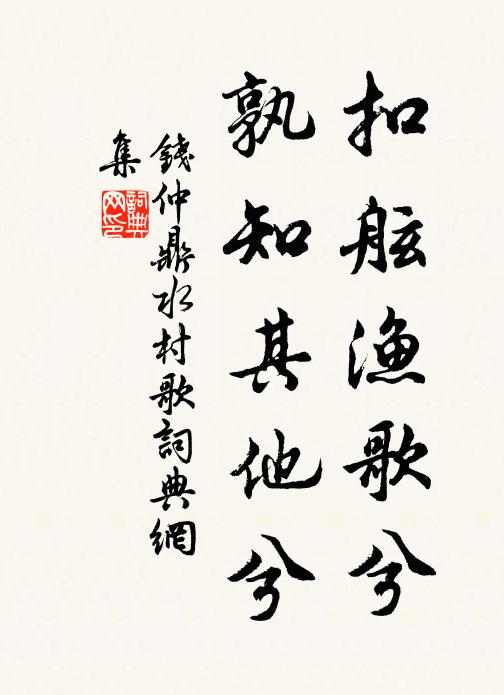 扣舷漁歌兮
孰知其他兮
錢仲鼎水村歌詞典網
集
詞典网印